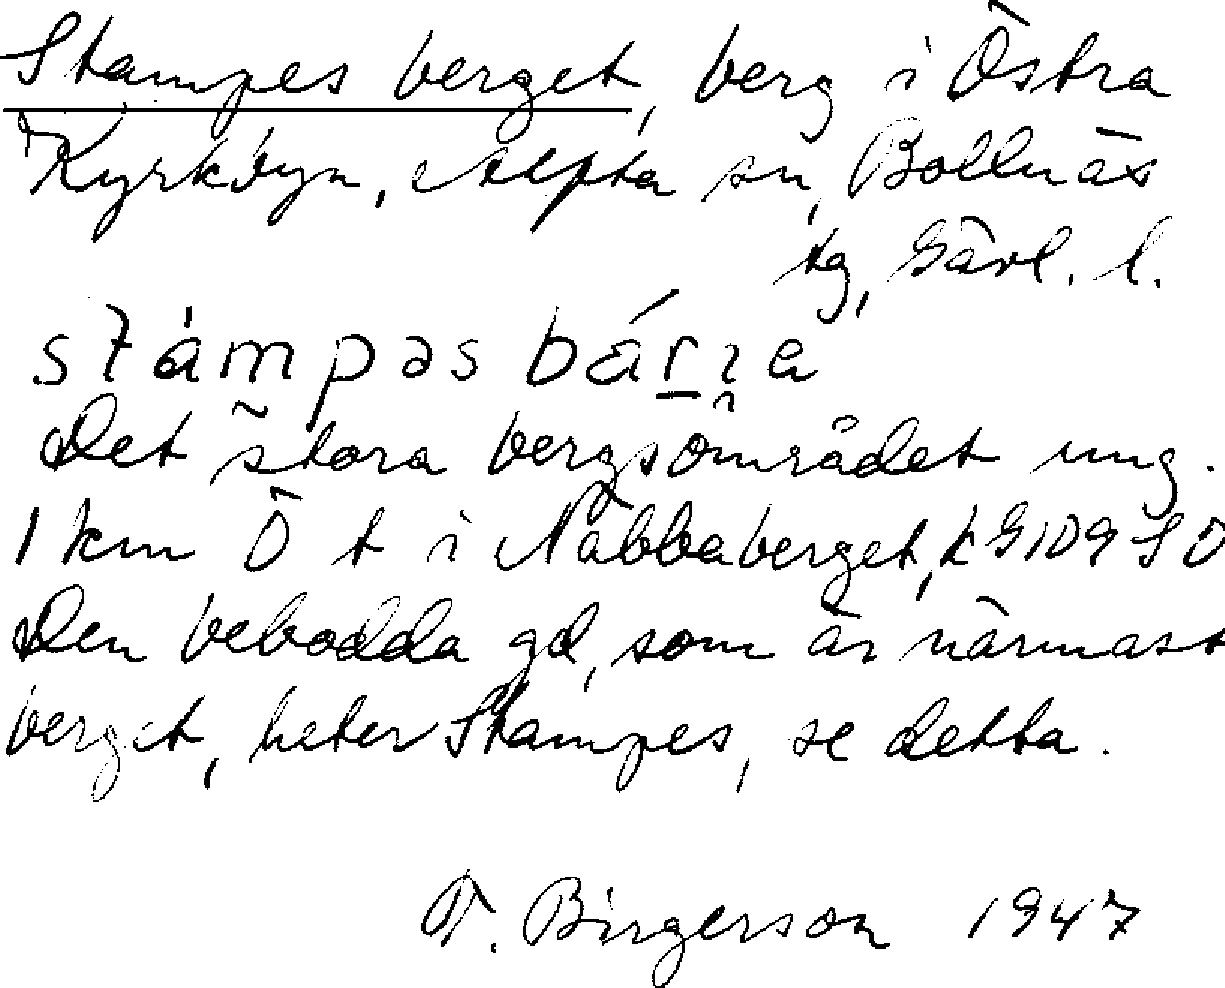 Stampes berget, berg i Östra
Kyrkbyn, Alfta sn, Bollnäs
tg, Gävl. l.
stámpəs bárıe
Det stora bergsområdet ung.
1 km Ö t i Näbbaberget, k G109 SO
Den bebodda gd, som är närmast
berget, heter Stampes, se detta.
T. Birgerson 1947